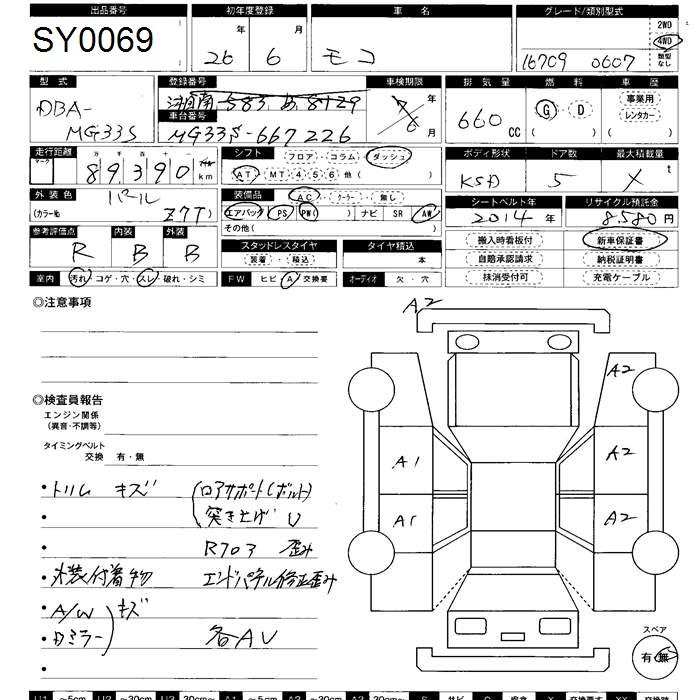 出品番号 初年度登録 車名 グレード/類別型式
SY0069 26年 6月 モコ 16709 0607 2WD 4WD 類型なし
型式 登録番号 車検期限 排気量 燃料 車歴
DBA-MG33S 湘南 583 あ 8429 年 月 660 CC G D ( ) 事業用 レンタカー ( )
車台番号
MG33S-667226
走行距離 シフト フロア・コラム ダッシュ ボディ形状 ドア数 最大積載量
マーク 十万 万 千 百 十 一
89390 km AT MT 4 5 6 他 ( ) 5 X t
外装色 パール 装備品 AC クーラー 無し シートベルト年 リサイクル預託金
(カラー№ Z7T) エアバッグ PS PW( ) ナビ SR AW 2014年 8,580円
その他( )
参考評価点 内装 外装 スタッドレスタイヤ タイヤ積込 搬入時看板付 新車保証書
R B B 装着・積込 本 自賠承認請求 納税証明書
室内 汚れ・コゲ・穴・スレ・破れ・シミ FW ヒビ A 交換要 オーディオ 欠・穴 抹消受付可 充電ケーブル
◎注意事項
A2
A2
◎検査員報告
エンジン関係
(異音・不調等)
タイミングベルト
交換 有・無
A1 A2
・トリム キズ (ロアサポート(ボルト)
・ 突き上げ U
A1 A2
・ R703 歪み
・ 装付着物 エンドパネル修正歪み
・A/W キズ
・Dミラー 各AU
スペア
有・無
・
U1 ～5cm U2 ～30cm U3 30cm～ A1 ～5cm A2 ～30cm A3 30cm～ S サビ C 腐食 X 交換要 XX 交換跡